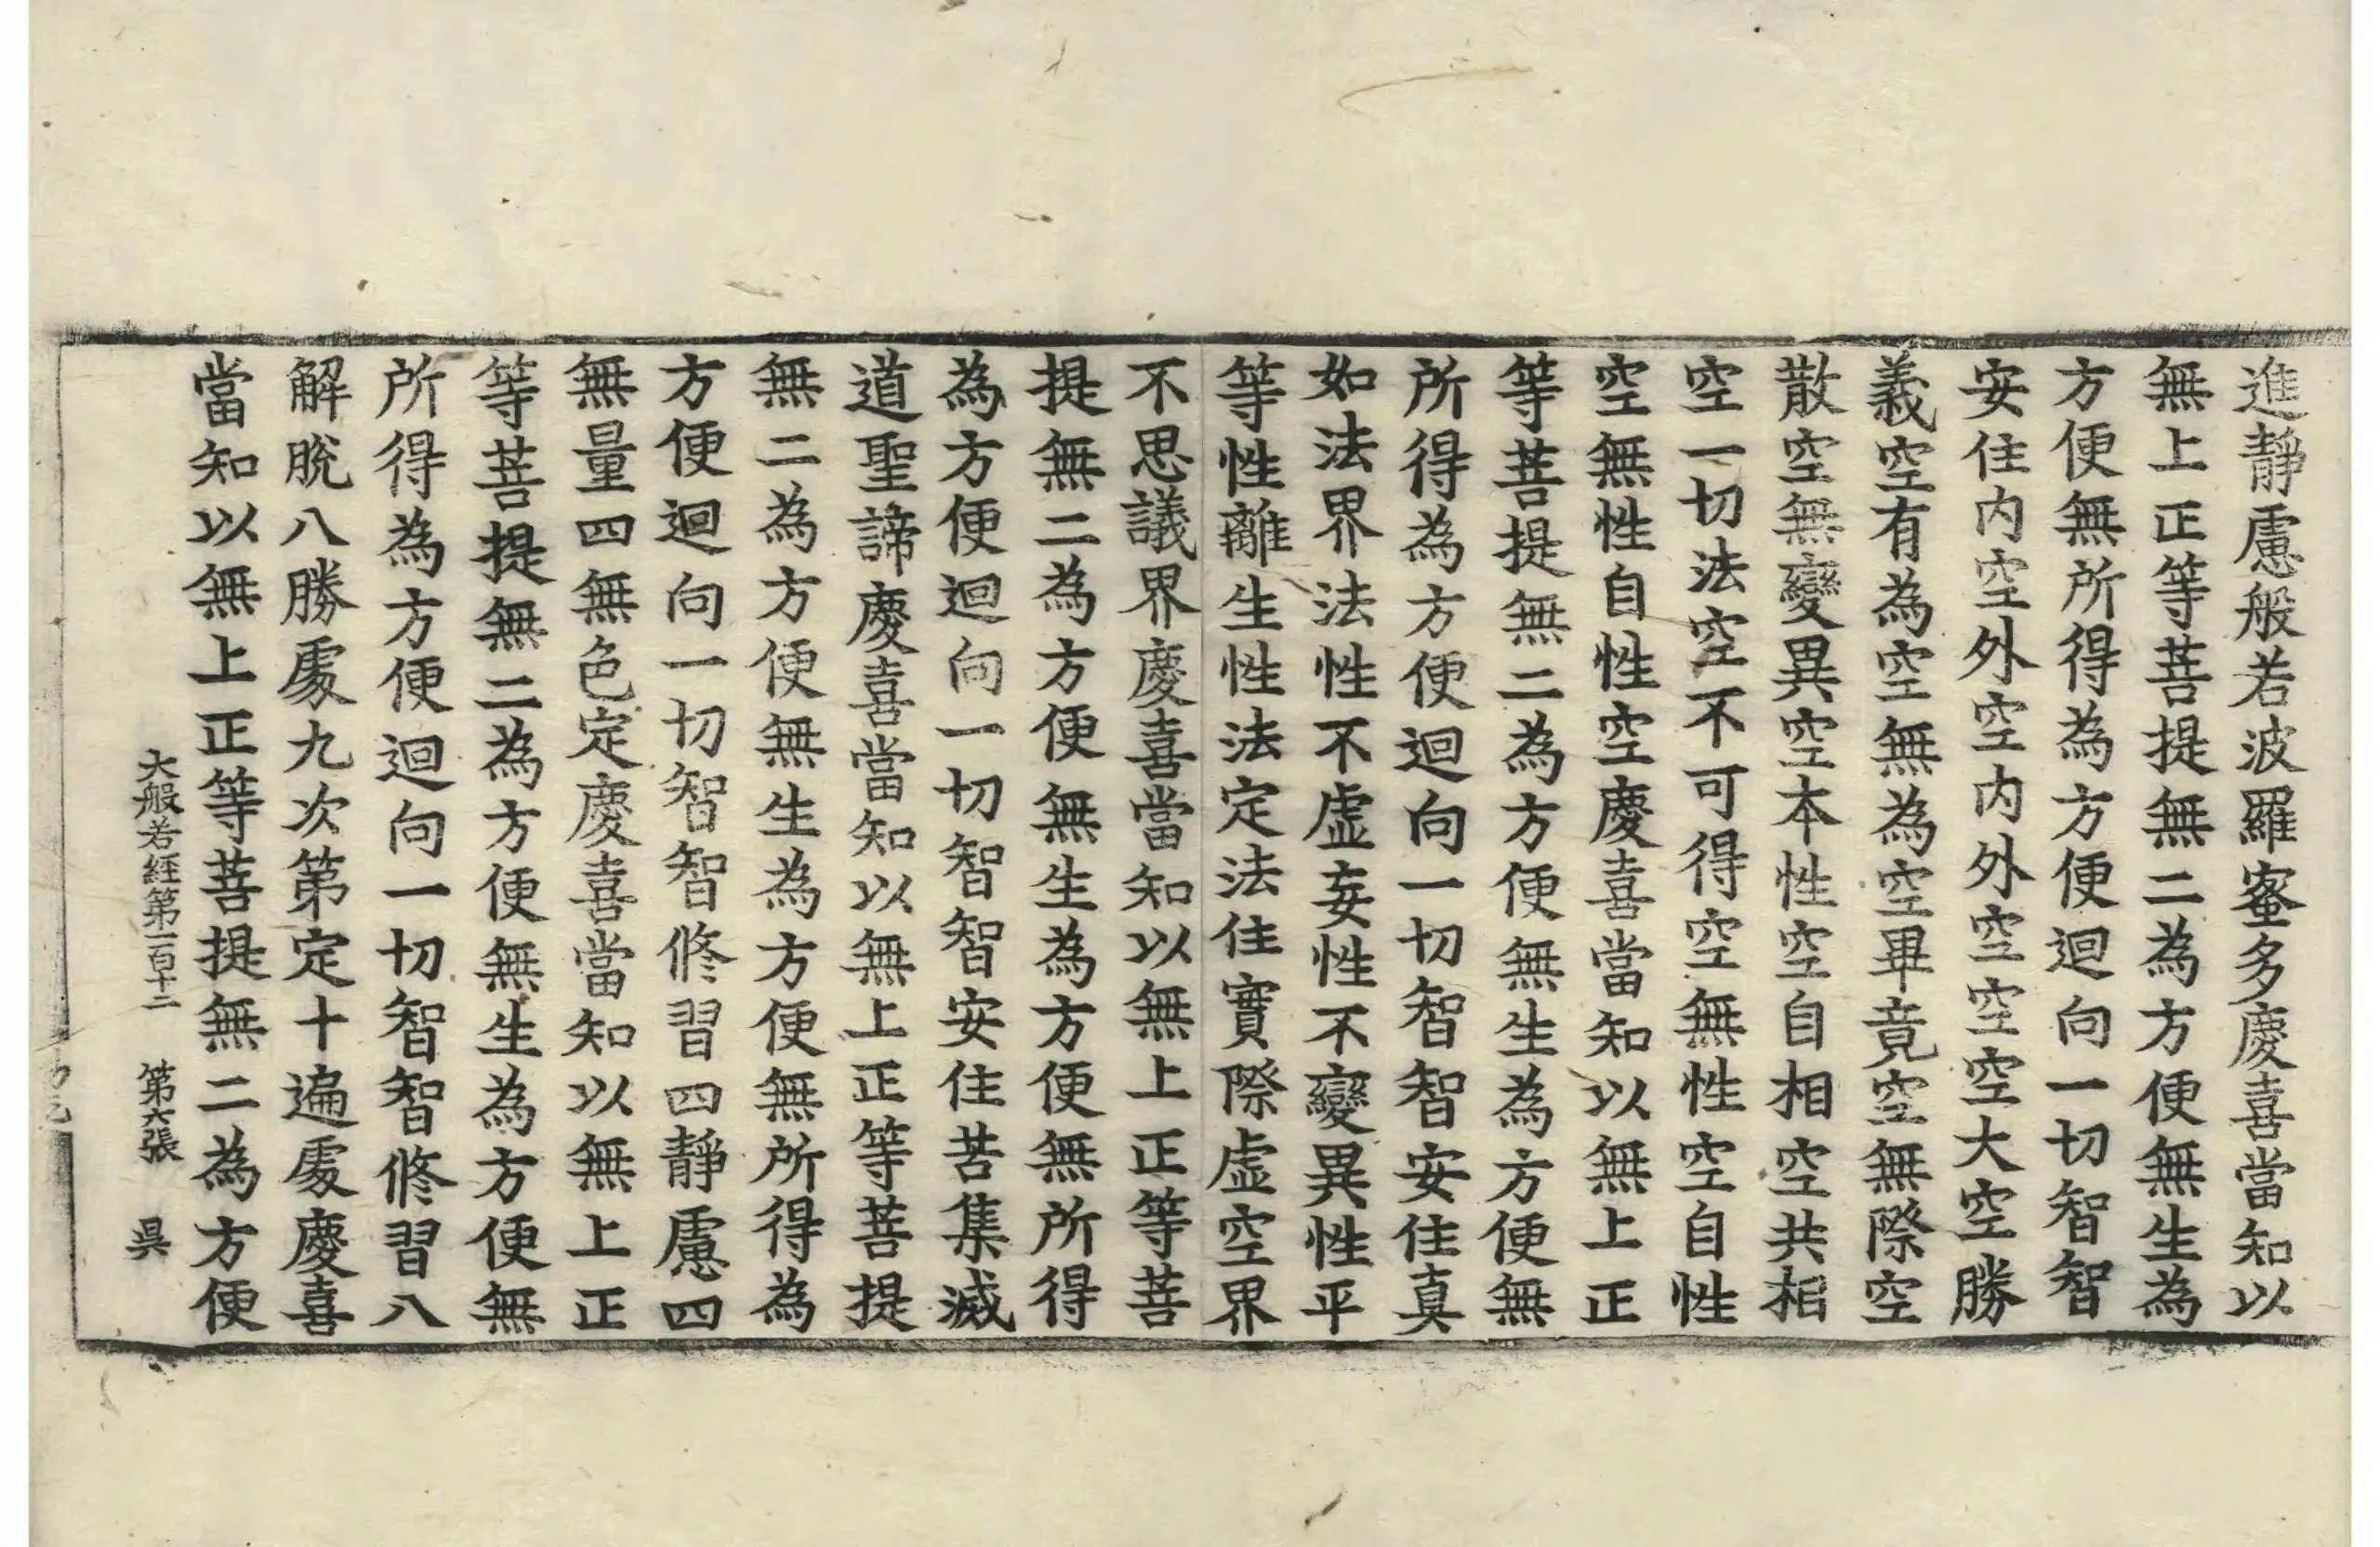 進靜慮般若波羅蜜多慶喜當知以
無上正等菩提無二為方便無生為
方便無所得為方便迴向一切智智
安住內空外空內外空空空大空勝
義空有為空無為空畢竟空無際空
散空無變異空本性空自相空共相
空一切法空不可得空無性空自性
空無性自性空慶喜當知以無上正
等菩提無二為方便無生為方便無
所得為方便迴向一切智智安住真
如法界法性不虛妄性不變異性平
等性離生性法定法住實際虛空界
不思議界慶喜當知以無上正等菩
提無二為方便無生為方便無所得
為方便迴向一切智智安住苦集滅
道聖諦慶喜當知以無上正等菩提
無二為方便無生為方便無所得為
方便迴向一切智智修習四靜慮四
無量四無色定慶喜當知以無上正
等菩提無二為方便無生為方便無
所得為方便迴向一切智智修習八
解脫八勝處九次第定十遍處慶喜
當知以無上正等菩提無二為方便
大般若經第一百十二 第六張 吳